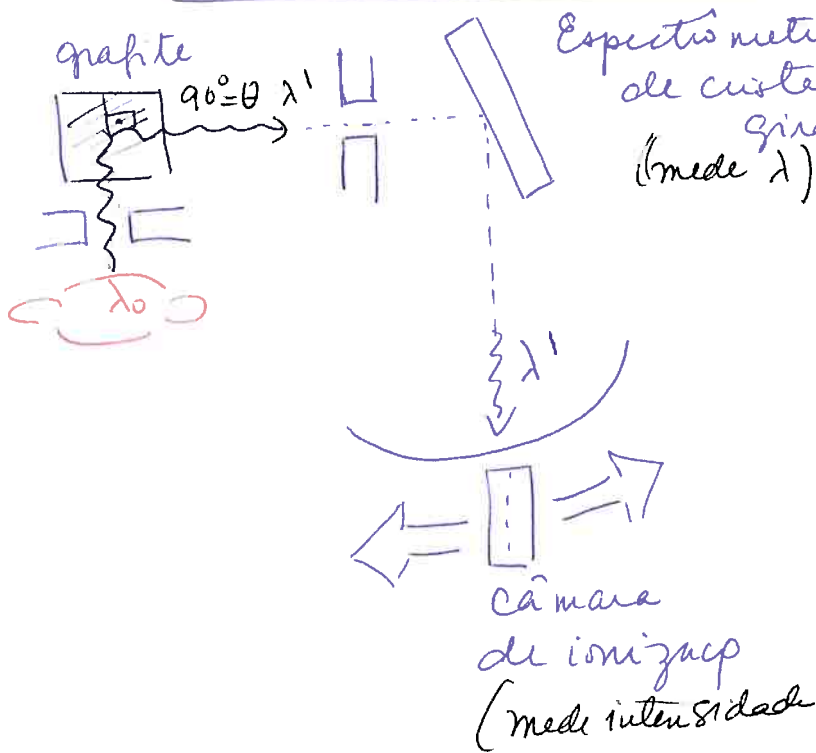 grafite
90°=θ λ'
Espectrômet
de crista
gira
(mede λ)
λ0
λ'
câmara
de ionizaçp
(mede intensidade